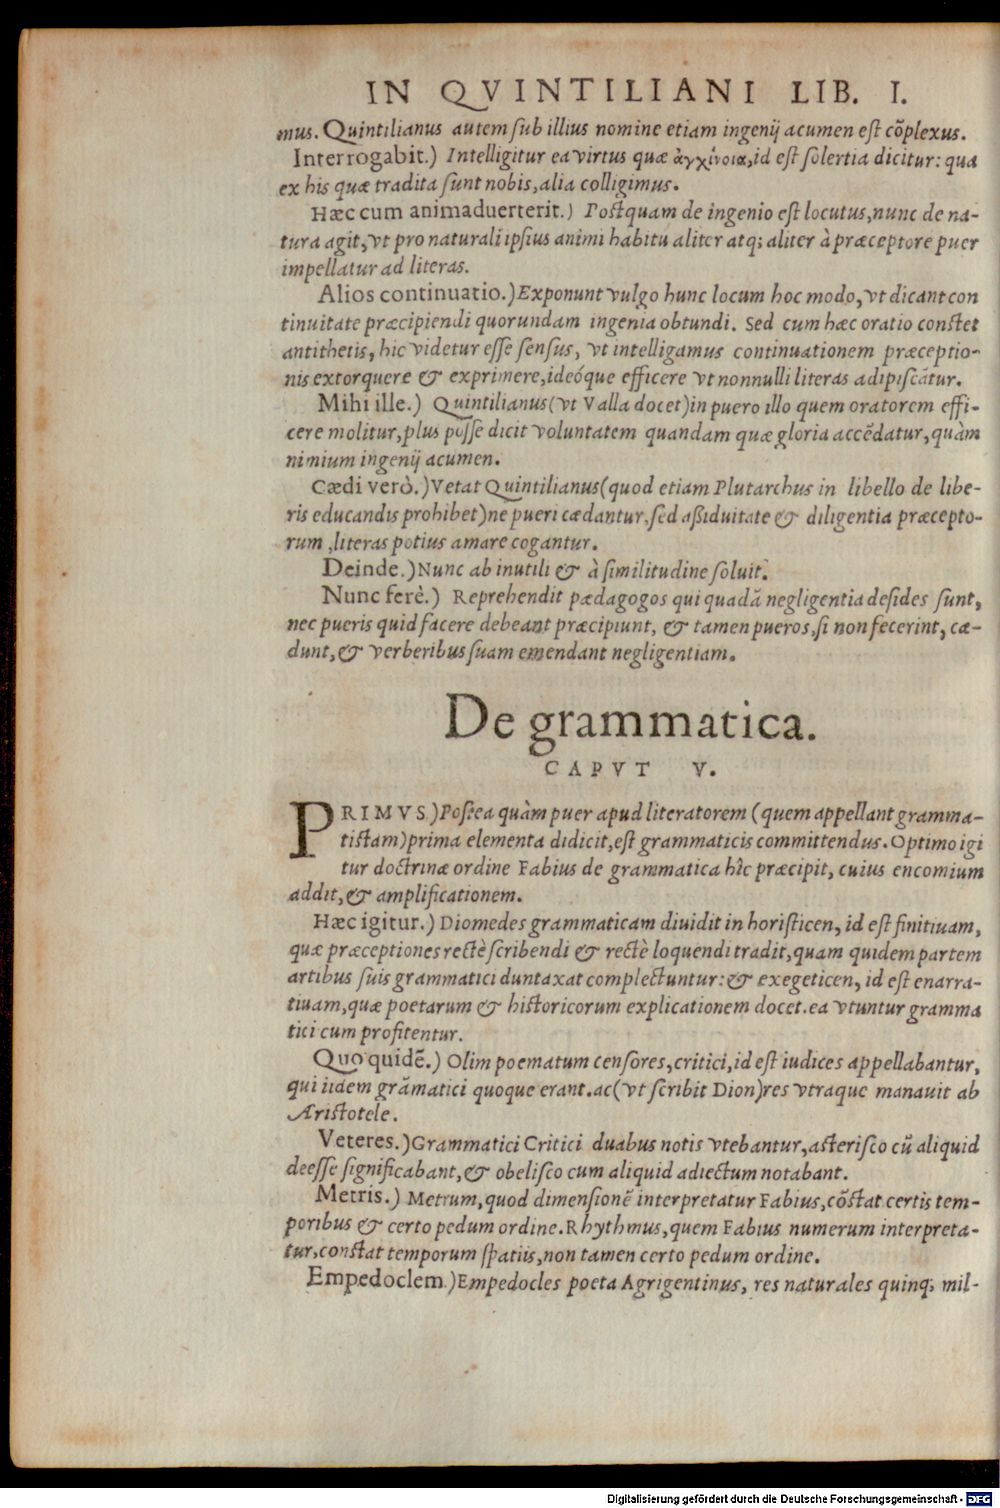 IN QVINTILIANI LIB. I.
mus. Quintilianus autem sub illius nomine etiam ingenij acumen est cõplexus.
Interrogabit.) Intelligitur ea virtus quæ ἀγχίνοια, id est solertia dicitur: qua
ex his quæ tradita sunt nobis, alia colligimus.
Hæc cum animaduerterit.) Postquam de ingenio est locutus, nunc de na-
tura agit, vt pro naturali ipsius animi habitu aliter atq; aliter à præceptore puer
impellatur ad literas.
Alios continuatio.) Exponunt vulgo hunc locum hoc modo, vt dicant con
tinuitate præcipiendi quorundam ingenia obtundi. Sed cum hæc oratio constet
antithetis, hic videtur esse sensus, vt intelligamus continuationem præceptio-
nis extorquere & exprimere, ideóque efficere vt nonnulli literas adipiscãtur.
Mihi ille.) Quintilianus (vt Valla docet) in puero illo quem oratorem effi-
cere molitur, plus posse dicit voluntatem quandam quæ gloria accẽdatur, quàm
nimium ingenij acumen.
Cædi verò.) Vetat Quintilianus (quod etiam Plutarchus in libello de libe-
ris educandis prohibet) ne pueri cædantur, sed aßiduitate & diligentia præcepto-
rum, literas potius amare cogantur.
Deinde.) Nunc ab inutili & à similitudine soluit.
Nunc ferè.) Reprehendit pædagogos qui quadã negligentia desides sunt,
nec pueris quid facere debeant præcipiunt, & tamen pueros, si non fecerint, cæ-
dunt, & verberibus suam emendant negligentiam.
De grammatica.
CAPVT V.
PRIMVS.) Postea quàm puer apud literatorem (quem appellant gramma-
tistam) prima elementa didicit, est grammaticis committendus. Optimo igi
tur doctrinæ ordine Fabius de grammatica hîc præcipit, cuius encomium
addit, & amplificationem.
Hæc igitur.) Diomedes grammaticam diuidit in horisticen, id est finitiuam,
quæ præceptiones rectè scribendi & rectè loquendi tradit, quam quidem partem
artibus suis grammatici duntaxat complectuntur: & exegeticen, id est enarra-
tiuam, quæ poetarum & historicorum explicationem docet. ea vtuntur gramma
tici cum profitentur.
Quo quidẽ.) Olim poematum censores, critici, id est iudices appellabantur,
qui iidem grãmatici quoque erant. ac (vt scribit Dion) res vtraque manauit ab
Aristotele.
Veteres.) Grammatici Critici duabus notis vtebantur, asterisco cũ aliquid
deesse significabant, & obelisco cum aliquid adiectum notabant.
Metris.) Metrum, quod dimensionẽ interpretatur Fabius, cõstat certis tem-
poribus & certo pedum ordine. Rhythmus, quem Fabius numerum interpreta-
tur, constat temporum spatiis, non tamen certo pedum ordine.
Empedoclem.) Empedocles poeta Agrigentinus, res naturales quinq; mil-
Digitalisierung gefördert durch die Deutsche Forschungsgemeinschaft - DFG